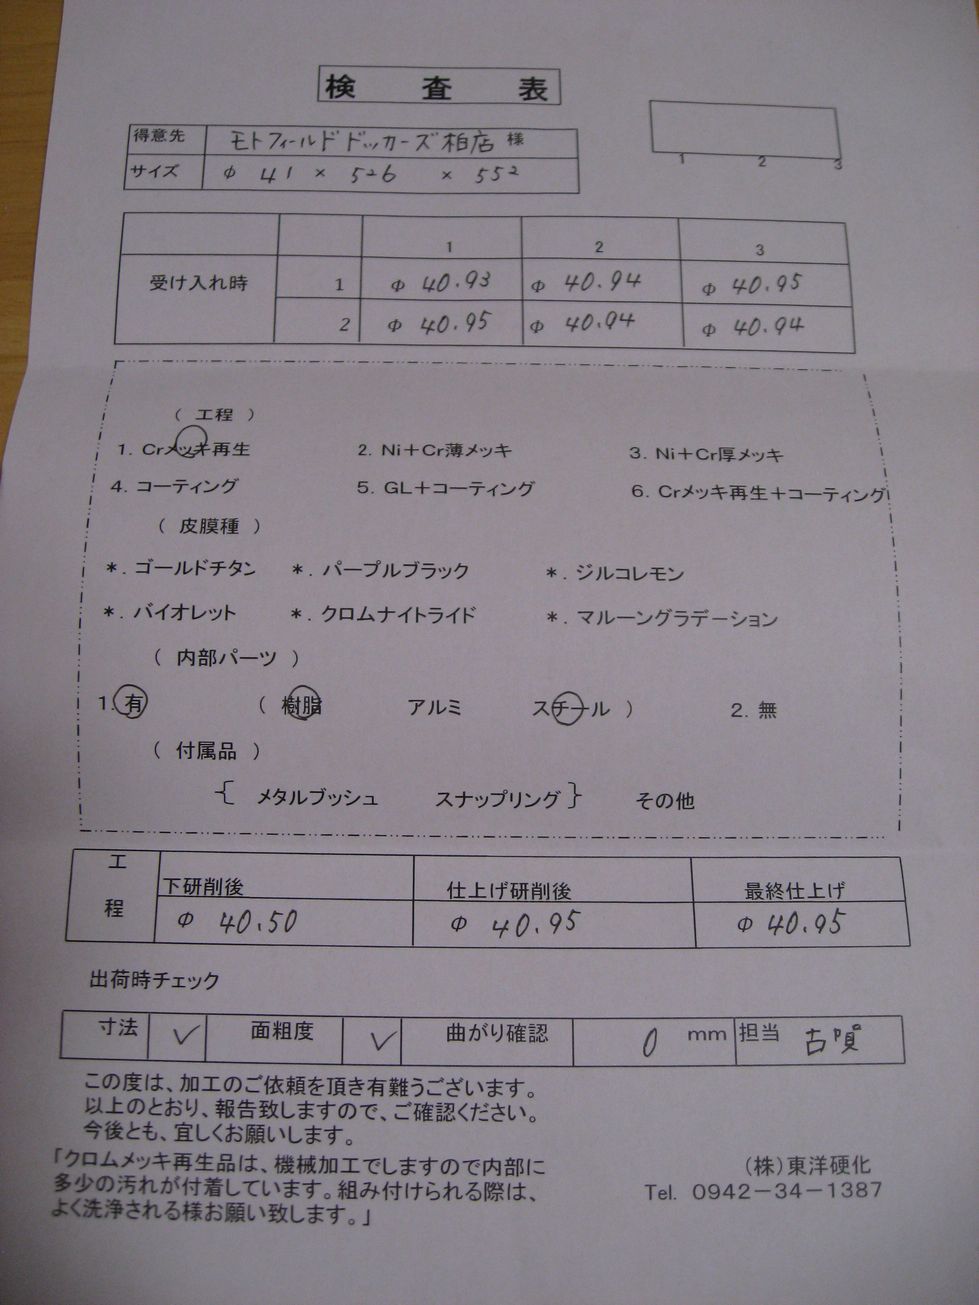 検 査 表
得意先 モトフィールドドッカーズ柏店 様
サイズ φ 41 × 526 × 552
1 2 3
1 2 3
受け入れ時 1 φ 40.93 φ 40.94 φ 40.95
2 φ 40.95 φ 40.94 φ 40.94
( 工程 )
1. Crメッキ再生 2. Ni+Cr薄メッキ 3. Ni+Cr厚メッキ
4. コーティング 5. GL+コーティング 6. Crメッキ再生+コーティング
( 皮膜種 )
*. ゴールドチタン *. パープルブラック *. ジルコレモン
*. バイオレット *. クロムナイトライド *. マルーングラデーション
( 内部パーツ )
1. 有 ( 樹脂 アルミ スチール ) 2. 無
( 付属品 )
{ メタルブッシュ スナップリング } その他
工程 下研削後 仕上げ研削後 最終仕上げ
φ 40.50 φ 40.95 φ 40.95
出荷時チェック
寸法 ✓ 面粗度 ✓ 曲がり確認 0 mm 担当
この度は、加工のご依頼を頂き有難うございます。
以上のとおり、報告致しますので、ご確認ください。
今後とも、宜しくお願いします。
「クロムメッキ再生品は、機械加工でしますので内部に
多少の汚れが付着しています。組み付けられる際は、
よく洗浄される様お願い致します。」
(株)東洋硬化
Tel. 0942-34-1387